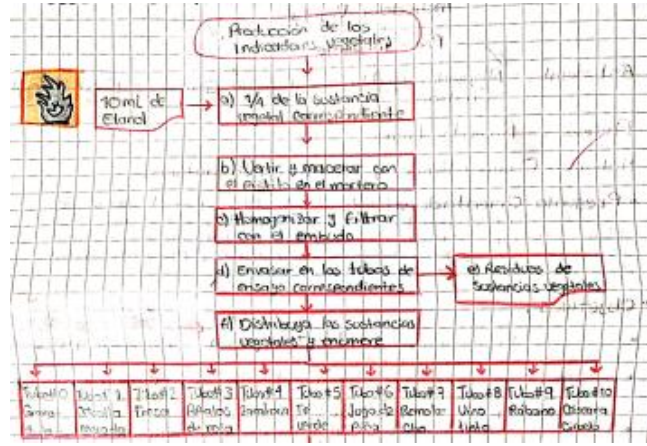 Producción de los
Indicadores vegetales
10mL de
Etanol
a) 1/4 de la sustancia
vegetal correspondiente
b) Vertir y macerar con
el pistilo en el mortero
c) Homogenizar y filtrar
con el embudo
d) Envasar en los tubos de
ensayo correspondientes
e) Residuos de
sustancias vegetales
f) Distribuya las sustancias
vegetales y enumere
Tubo#0
Tubo#1
morada
Tubo#2
Fresa
Tubo#3
Pétalos
de rosa
Tubo#4
Jamaica
Tubo#5
Té
verde
Tubo#6
Jugo de
Piña
Tubo#7
Remola-
cha
Tubo#8
Vino
tinto
Tubo#9
Rábano
Tubo#10
Cáscara
Ciruela